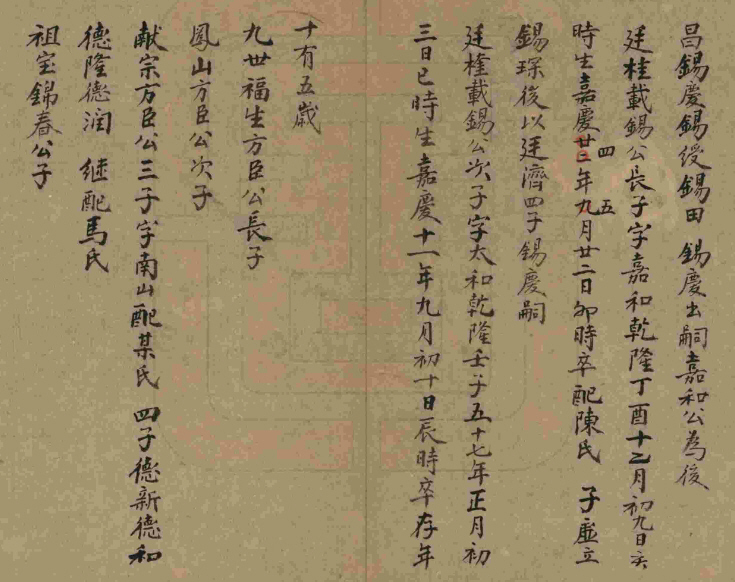 昌錫慶錫綬錫田　錫慶出嗣嘉和公為後
廷桂載錫公長子字嘉和乾隆丁酉十二月初九日亥
時生嘉慶廿二年九月廿二日卯時卒配陳氏　子虛立
四
五
錫琛後以廷濟四子錫慶嗣
廷槿載錫公次子字太和乾隆壬子五十七年正月初
三日巳時生嘉慶十一年九月初十日辰時卒存年
十有五歲
九世福生方臣公長子
鳳山方臣公次子
献宗方臣公三子字南山配某氏　四子德新德和
德隆德润　继配馬氏
祖宝錦春公子